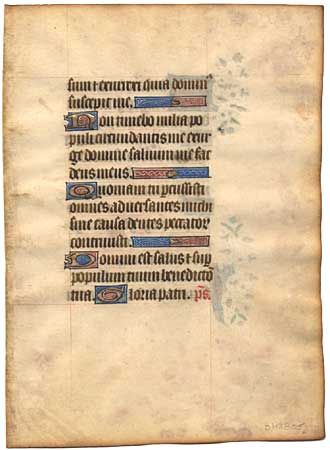 sum et exurrexi quia domin⁹
suscepit me.
Non timebo milia po
puli circumdantis me exur
ge domine salvum me fac
deus meus.
Quoniam tu percussisti
omnes adversantes michi
sine causa dentes peccator
contrivisti.
Domini est salus et sup̄
populum tuum benedictō
tua Gloria patri. p̄s.